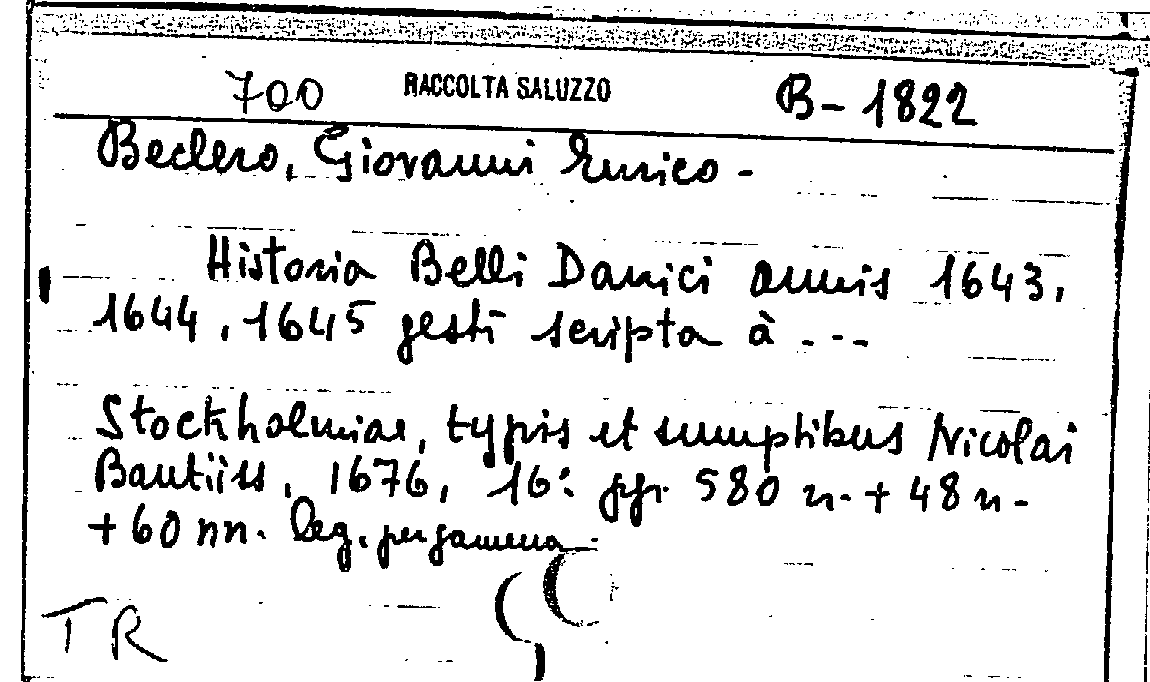 700 RACCOLTA SALUZZO B-1822
Beclero, Giovanni Enrico -
Historia Belli Danici annis 1643,
1644, 1645 gesti scripta à ---
Stockholmiae, typis et sumptibus Nicolai
Bantiiss, 1676, 16° pp. 580 n. + 48 n.
+ 60 nn. Leg. pergamena.
TR